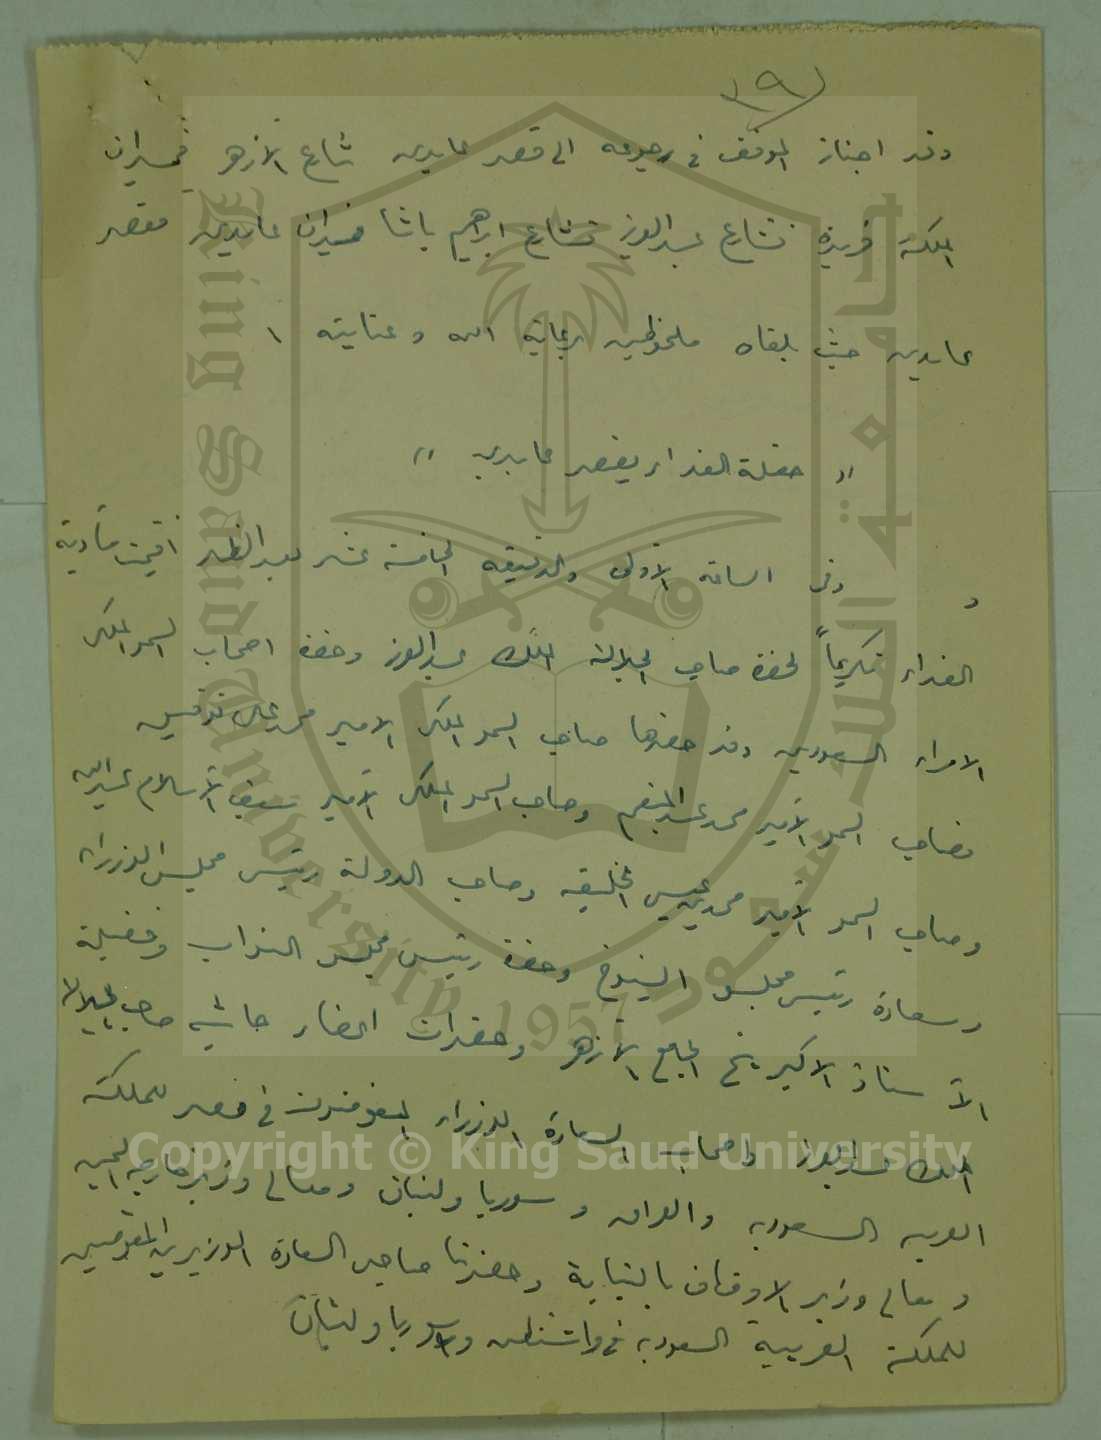 (١٩
وقد اجتاز الموكب في رجوعه الى قصر عابدين شارع الازهر فميدان
الملكة فريدة فشارع عبدالعزيز فشارع ابراهيم باشا فميدان عابدين فقصر
عابدين حيث بلغاه ملحوظين برعاية الله وعنايته ١
" حفلة الغداء بقصر عابدين "
وفى الساعة الأولى والدقيقه الخامسة عشر بعد الظهر أقيمت مأدبة
الغداء تكريماً لحضرة صاحب الجلالة الملك عبدالعزيز وحضرة اصحاب السمو الملكى
الامراء السعوديين وقد حضرها صاحب السمو الملكى الامير محمد على توفيق
وصاحب السمو الأمير محمد عبدالمنعم وصاحب السمو الملكى الأمير سيف الأسلام عبدالله
وصاحب السمو الأمير محمد بن عيسى الخليفه وصاحب الدولة رئيس مجلس الوزراء
وسعادة رئيس مجلس الشيوخ وحضرة رئيس مجلس النواب وفضيلة
الأستاذ الاكبر شيخ الجامع الأزهر وحضرات الحضار حاشية صاحب الجلالة
الملك عبدالعزيز واصحاب السعادة الوزراء المفوضون في مصر للمملكة
العربيه السعوديه والعراق و سوريا ولبنان ومعالى وزير خارجية اليمن
ومعالى وزير الاوقاف بالنيابة وحضرتا صاحبى السعادة الوزيرين المفوضين
للمملكة العربية السعوديه في واشنطن وسوريا ولبنان
جامعة الملك سعود
King Saud University
1957
Copyright © King Saud University